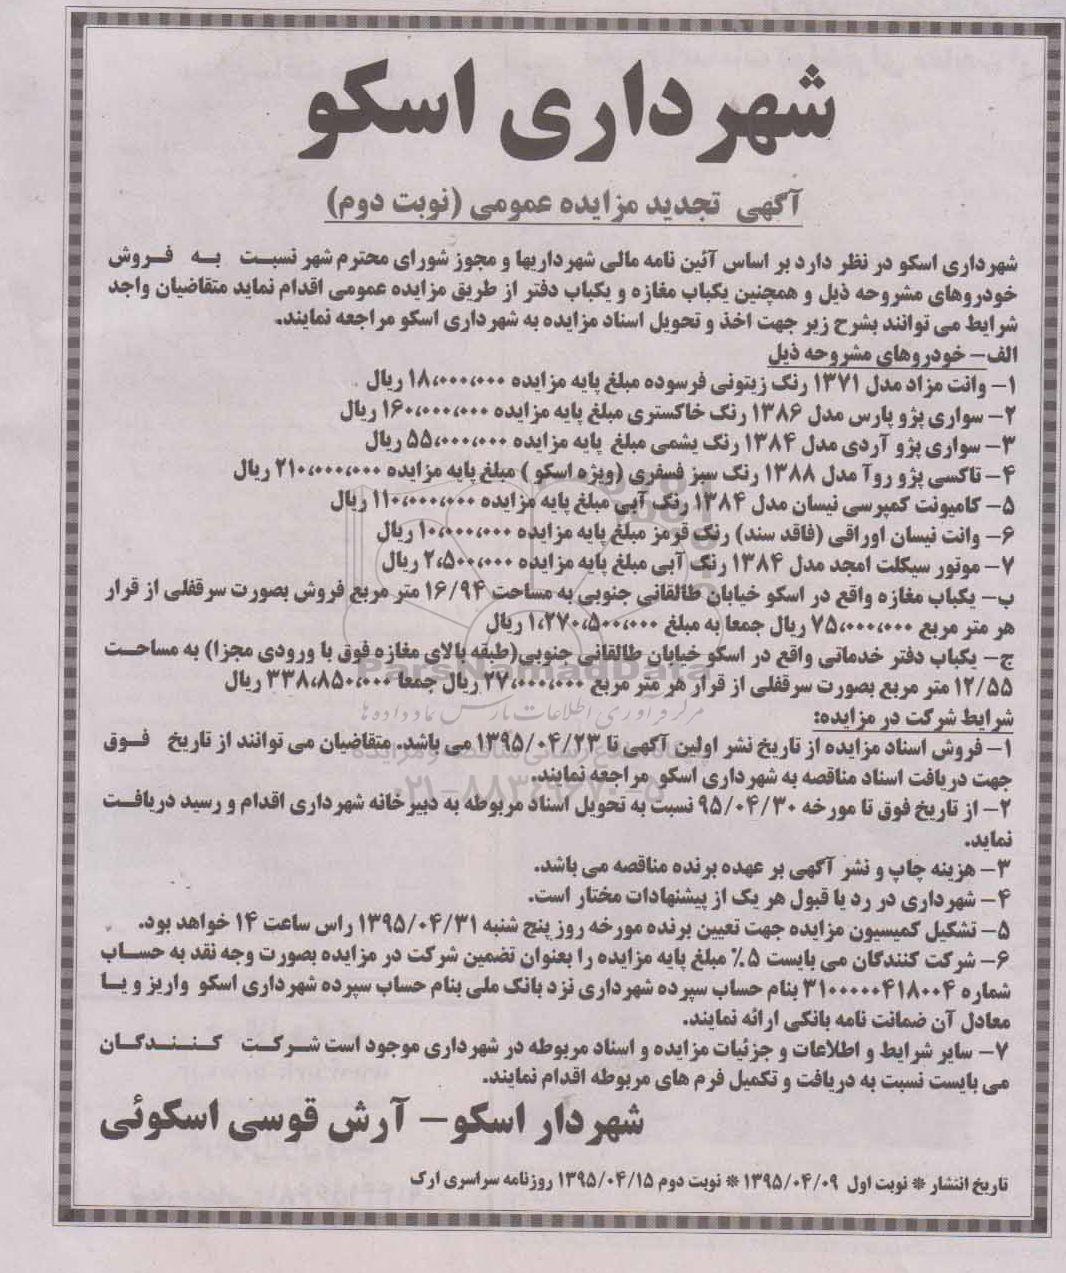 شهرداری اسکو
آگهی تجدید مزایده عمومی (نوبت دوم)
شهرداری اسکو در نظر دارد بر اساس آئین نامه مالی شهرداریها و مجوز شورای محترم شهر نسبت به فروش
خودروهای مشروحه ذیل و همچنین یکباب مغازه و یکباب دفتر از طریق مزایده عمومی اقدام نماید متقاضیان واجد
شرایط می توانند بشرح زیر جهت اخذ و تحویل اسناد مزایده به شهرداری اسکو مراجعه نمایند.
الف- خودروهای مشروحه ذیل
۱- وانت مزاد مدل ۱۳۷۱ رنگ زیتونی فرسوده مبلغ پایه مزایده ۱۸،۰۰۰،۰۰۰ ریال
۲- سواری پژو پارس مدل ۱۳۸۶ رنگ خاکستری مبلغ پایه مزایده ۱۶۰،۰۰۰،۰۰۰ ریال
۳- سواری پژو آردی مدل ۱۳۸۴ رنگ یشمی مبلغ پایه مزایده ۵۵،۰۰۰،۰۰۰ ریال
۴- تاکسی پژو روآ مدل ۱۳۸۸ رنگ سبز فسفری (ویژه اسکو ) مبلغ پایه مزایده ۲۱۰،۰۰۰،۰۰۰ ریال
۵- کامیونت کمپرسی نیسان مدل ۱۳۸۴ رنگ آبی مبلغ پایه مزایده ۱۱۰،۰۰۰،۰۰۰ ریال
۶- وانت نیسان اوراقی (فاقد سند) رنگ قرمز مبلغ پایه مزایده ۱۰،۰۰۰،۰۰۰ ریال
۷- موتور سیکلت امجد مدل ۱۳۸۴ رنگ آبی مبلغ پایه مزایده ۲،۵۰۰،۰۰۰ ریال
ب- یکباب مغازه واقع در اسکو خیابان طالقانی جنوبی به مساحت ۱۶/۹۴ متر مربع فروش بصورت سرقفلی از قرار
هر متر مربع ۷۵،۰۰۰،۰۰۰ ریال جمعا به مبلغ ۱،۲۷۰،۵۰۰،۰۰۰ ریال
ج- یکباب دفتر خدماتی واقع در اسکو خیابان طالقانی جنوبی(طبقه بالای مغازه فوق با ورودی مجزا) به مساحت
ParsNamadData
۱۲/۵۵ متر مربع بصورت سرقفلی از قرار هر متر مربع ۲۷،۰۰۰،۰۰۰ ریال جمعا ۳۳۸،۸۵۰،۰۰۰ ریال
مرکز فرآوری اطلاعات پارس نماد داده ها
شرایط شرکت در مزایده:
۱- فروش اسناد مزایده از تاریخ نشر اولین آگهی تا ۱۳۹۵/۰۴/۲۳ می باشد. متقاضیان می توانند از تاریخ فوق
جهت دریافت اسناد مناقصه به شهرداری اسکو مراجعه نمایند.
۰۲۱-۸۸۳۴۹۶۷۰-۵
۲- از تاریخ فوق تا مورخه ۹۵/۰۴/۳۰ نسبت به تحویل اسناد مربوطه به دبیرخانه شهرداری اقدام و رسید دریافت
نماید.
۳- هزینه چاپ و نشر آگهی بر عهده برنده مناقصه می باشد.
۴- شهرداری در رد یا قبول هر یک از پیشنهادات مختار است.
۵- تشکیل کمیسیون مزایده جهت تعیین برنده مورخه روز پنج شنبه ۱۳۹۵/۰۴/۳۱ راس ساعت ۱۴ خواهد بود.
۶- شرکت کنندگان می بایست ۵٪ مبلغ پایه مزایده را بعنوان تضمین شرکت در مزایده بصورت وجه نقد به حساب
شماره ۳۱۰۰۰۰۰۴۱۸۰۰۴ بنام حساب سپرده شهرداری نزد بانک ملی بنام حساب سپرده شهرداری اسکو واریز و یا
معادل آن ضمانت نامه بانکی ارائه نمایند.
۷- سایر شرایط و اطلاعات و جزئیات مزایده و اسناد مربوطه در شهرداری موجود است شرکت کنندگان
می بایست نسبت به دریافت و تکمیل فرم های مربوطه اقدام نمایند.
شهردار اسکو- آرش قوسی اسکوئی
تاریخ انتشار * نوبت اول ۱۳۹۵/۰۴/۰۹ * نوبت دوم ۱۳۹۵/۰۴/۱۵ روزنامه سراسری ارک